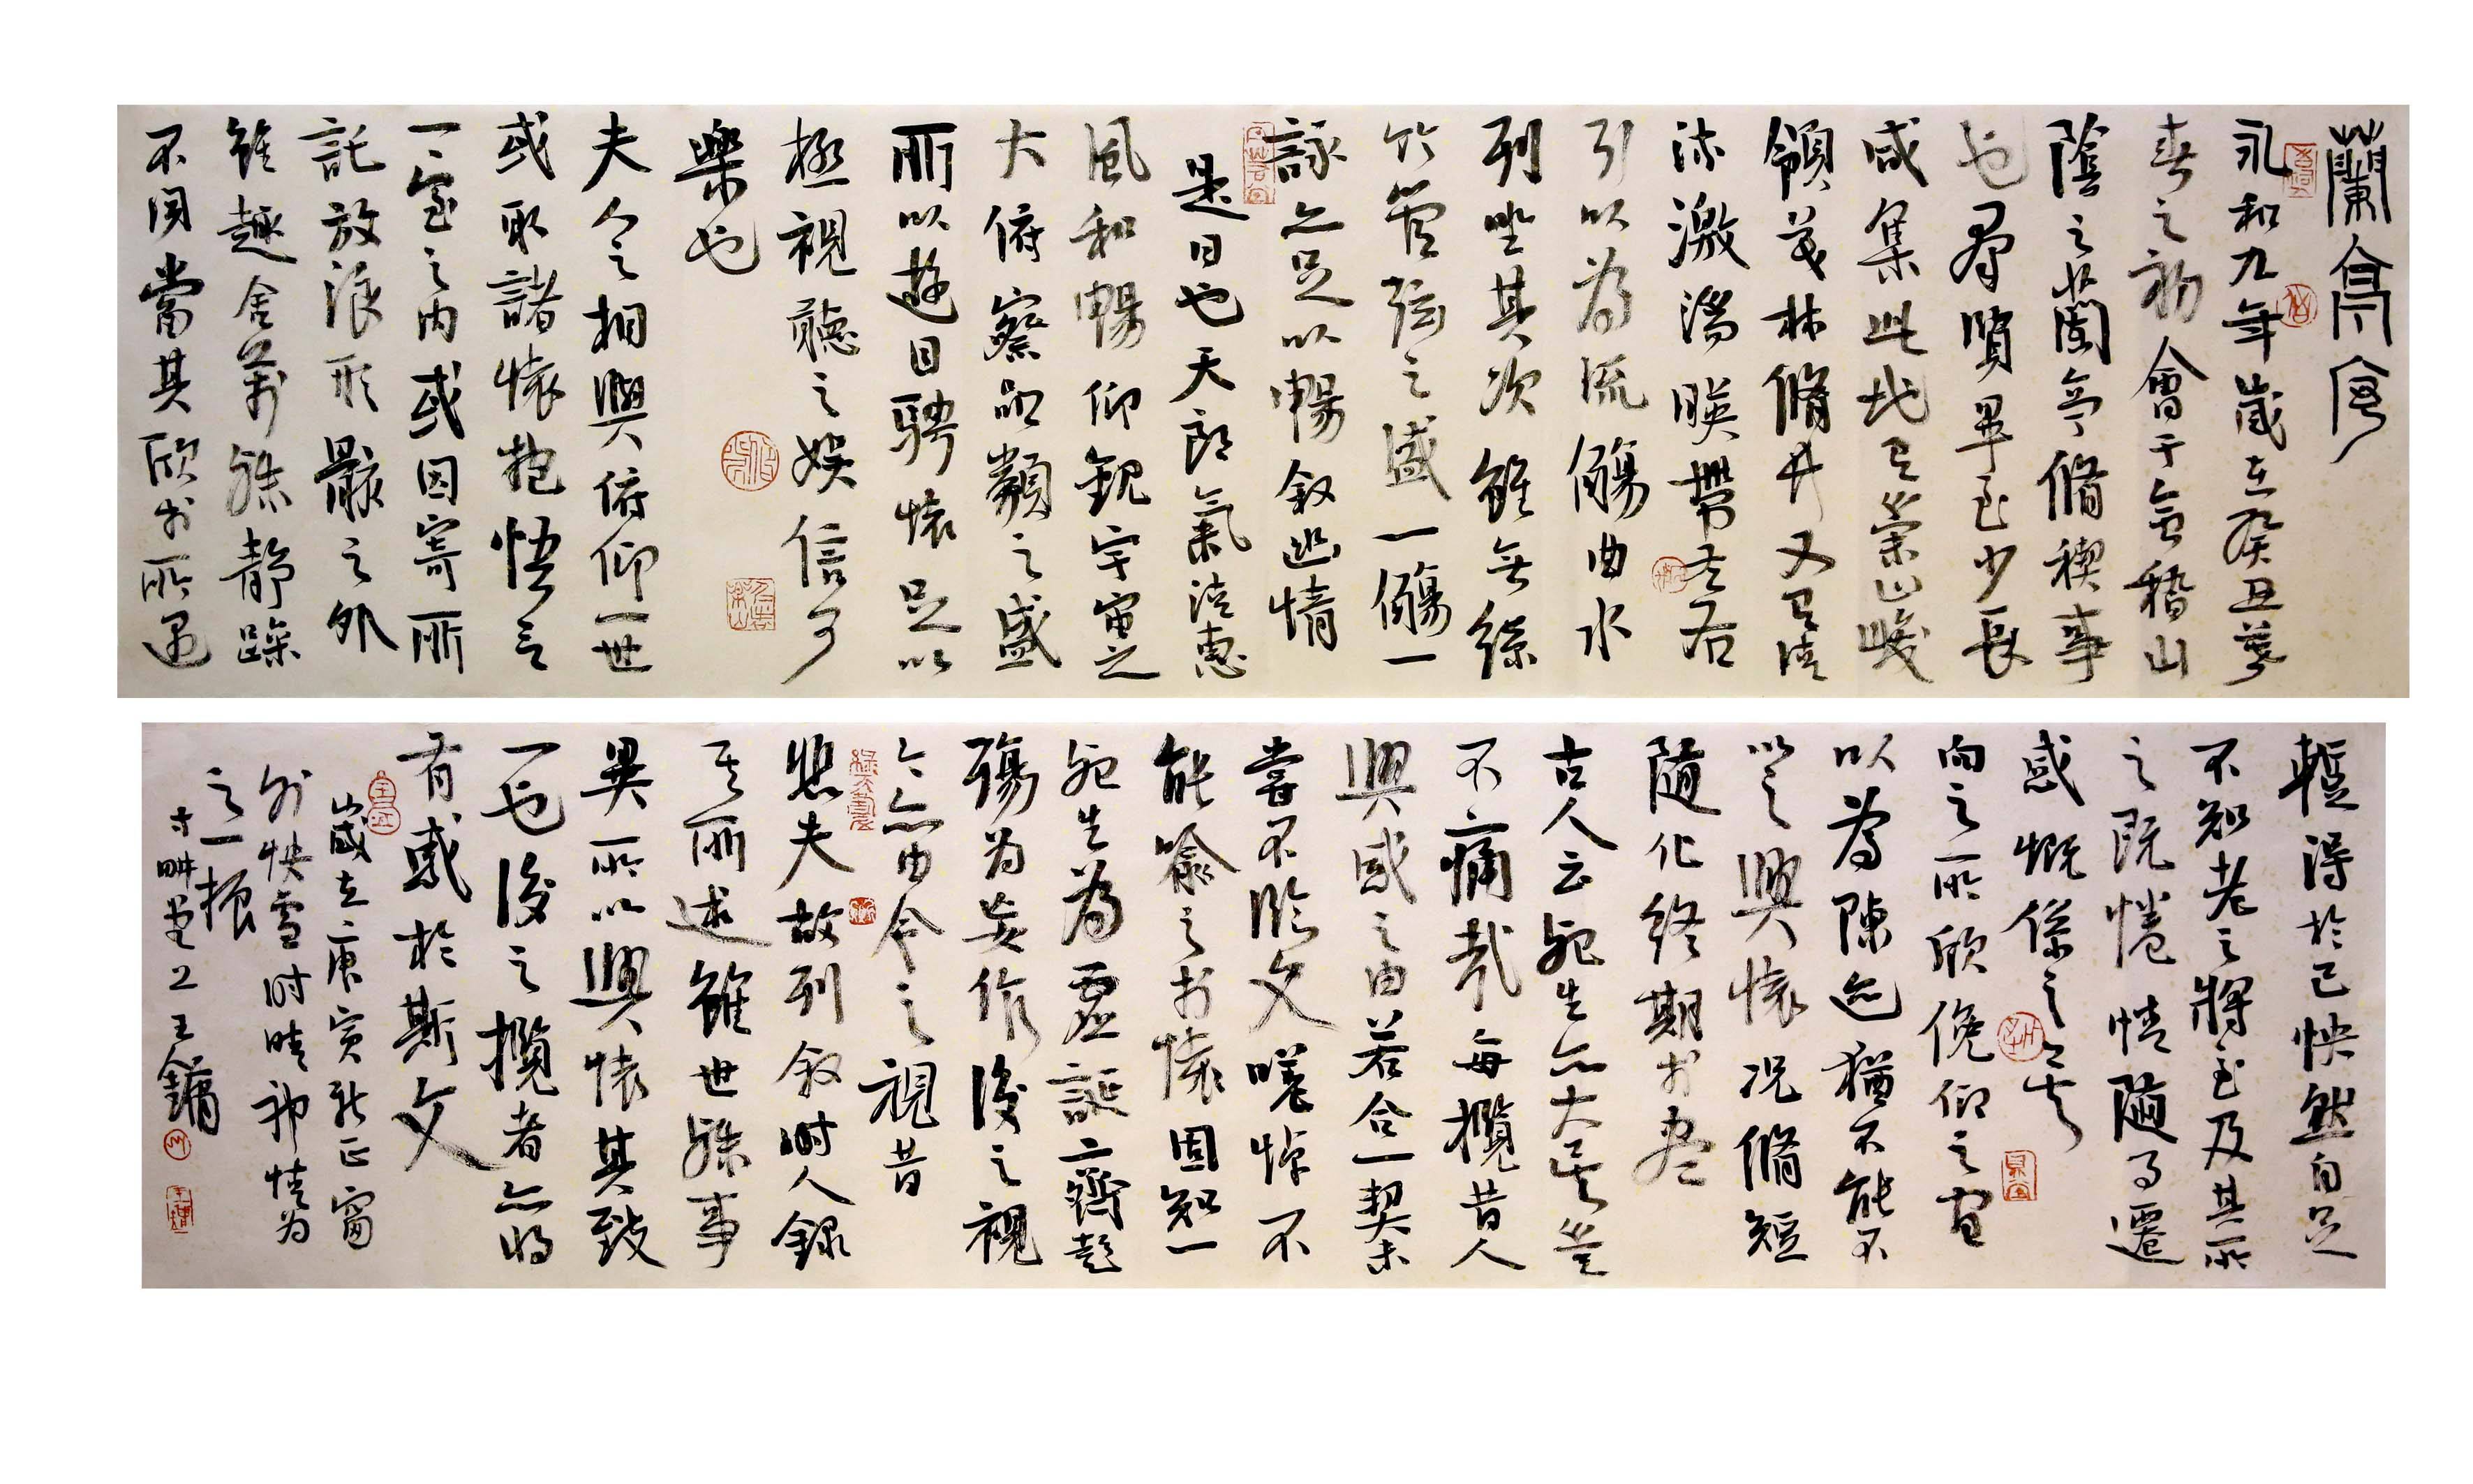 蘭亭序
永和九年歲在癸丑暮
春之初會于會稽山
陰之蘭亭脩禊事
也羣賢畢至少長
咸集此地有崇山峻
領茂林脩竹又有清
流激湍暎帶左右
引以為流觴曲水
列坐其次雖無絲
竹管弦之盛一觴一
詠亦足以暢敘幽情
是日也天朗氣清惠
風和暢仰觀宇宙之
大俯察品類之盛
所以遊目騁懷足以
極視聽之娛信可
樂也
夫人之相與俯仰一世
或取諸懷抱悟言
一室之內或因寄所
託放浪形骸之外
雖趣舍萬殊靜躁
不同當其欣於所遇
蹔得於己怏然自足
不知老之將至及其所
之既惓情隨事遷
感慨係之矣
向之所欣俛仰之間
以為陳迹猶不能不
以之興懷況脩短
隨化終期於盡
古人云死生亦大矣豈
不痛哉每攬昔人
興感之由若合一契未
嘗不臨文嗟悼不
能喻之於懷固知一
死生為虛誕齊彭
殤為妄作後之視
今亦由今之視昔
悲夫故列敘時人錄
其所述雖世殊事
異所以興懷其致
一也後之攬者亦將
有感於斯文
歲在庚寅新正窗
外快雪时晴神情为
之一振
寸畊堂上王鏞